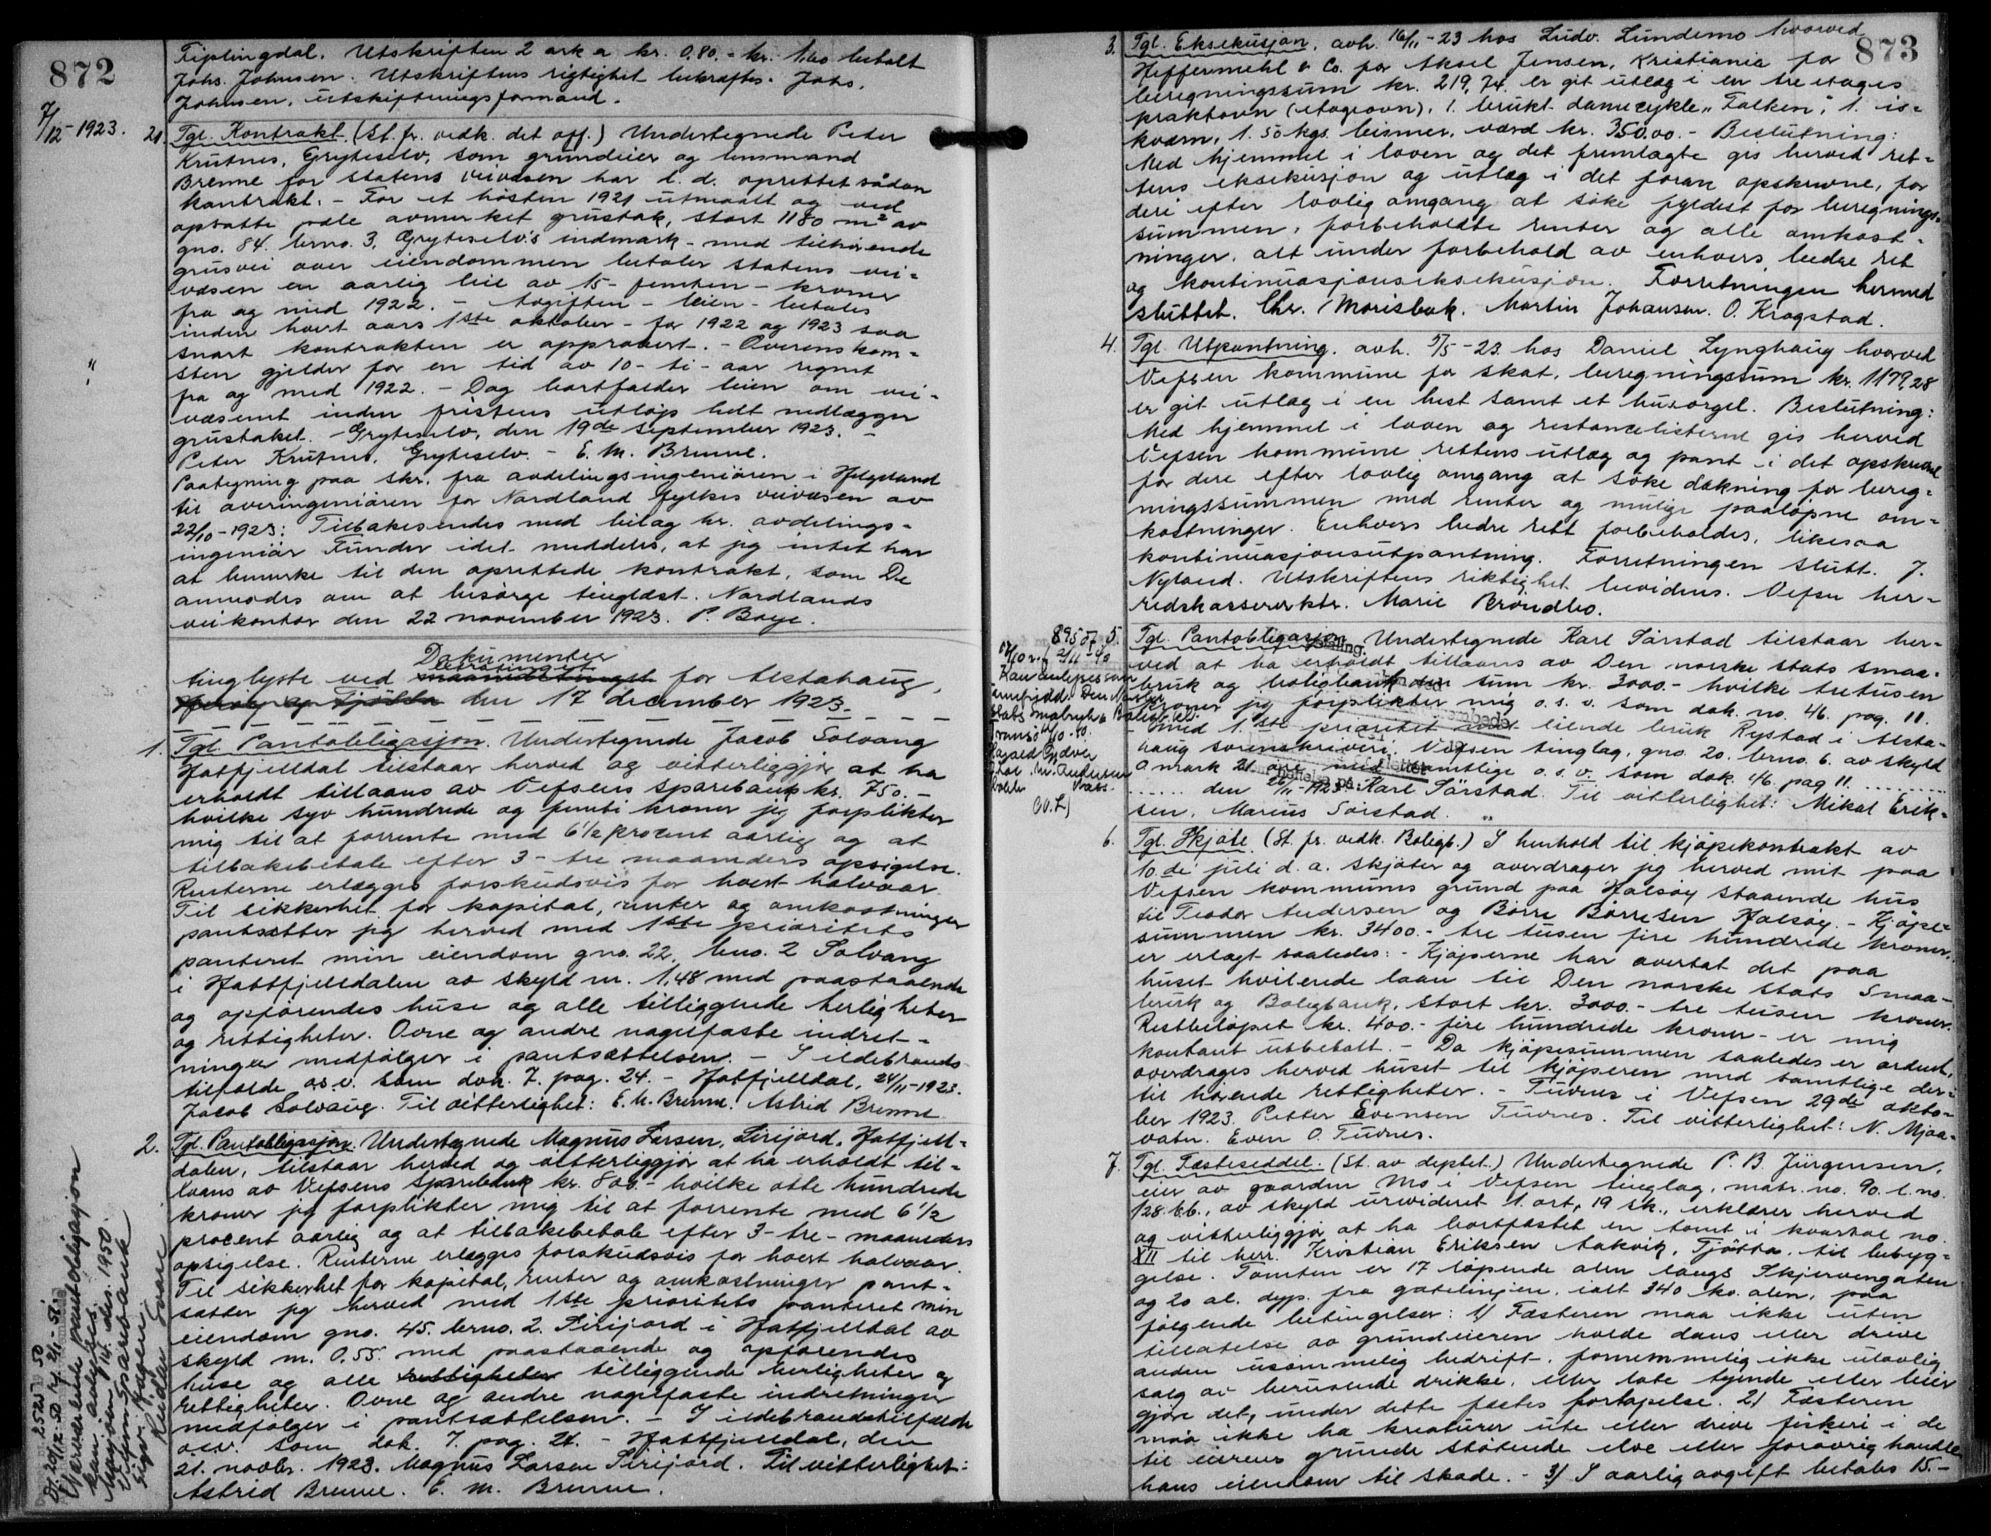 872
Tiplingdal. Utskriften 2 ark a kr. 0,80. - kr. 1,60 betalt
Johs. Johnsen. Utskriftens rigtighet bekræftes. Johs.
Johnsen, utskiftningsformand.
7/12-1923.
21. Tgl. Kontrakt. (St. fr. vedk. det off.) Undertegnede Peter
Krutnes, Gryteselv, som grundeier og lensmand
Brenne for statens veivæsen har d. d. oprettet sådan
kontrakt. - For et høsten 1921 utmaalt og ved
opsatte pæle avmerket grustak, stort 1180 m² av
gno. 84. brno. 3, Gryteselv's indmark - med tilhørende
grusvei over eiendommen betaler statens vei-
væsen en aarlig leie av 15 - femten - kroner
fra og med 1922. - Avgiften - leien - betales
inden hvert aars 1ste oktober - for 1922 og 1923 saa
snart kontrakten er approbert. - Overenskom-
sten gjelder for en tid av 10 - ti - aar regnet
"
fra og med 1922. - Dog bortfalder leien om vei-
væsenet inden fristens utløp helt nedlægger
grustaket. - Gryteselv, den 19de september 1923. -
Peter Krutnes, Gryteselv. - E. M. Brenne.
Paategning paa skr. fra avdelingsingeniøren i Helgeland
til overingeniøren for Nordland fylkes veivæsen av
22/10-1923: Tilbakesendes med bilag hr. avdelings-
ingeniør Funder idet meddeles, at jeg intet har
at bemerke til den oprettede kontrakt, som De
anmodes om at besørge tinglæst. Nordlands
veikontor den 22 november 1923. P. Boye.
Dokumenter
tinglyste ved maanedstinget for Alstahaug,
Herøy og Tjøtta den 17 december 1923.
1. Tgl. Pantobligasjon. Undertegnede Jacob Solvang
Hatfjelldal tilstaar herved og vitterliggjør at ha
erholdt tillaans av Vefsens Sparebank kr. 750.-
hvilke syv hundrede og femti kroner jeg forplikter
mig til at forrente med 6 1/2 procent aarlig og at
tilbakebetale efter 3 - tre maaneders opsigelse.
Renterne erlægges forskudsvis for hvert halvaar.
Til sikkerhet for kapital, renter og omkostninger
pantsætter jeg herved med 1ste prioritets
panteret min eiendom gno. 22. brno. 2 Solvang
i Hattfjelldalen av skyld m. 1,48 med paastaaende
og opførendes huse og alle tilliggende herligheter
og rettigheter. Ovne og andre nagelfaste indret-
ninger medfølger i pantsættelsen. - I ildebrands-
tilfælde osv. som dok. 7. pag. 24. - Hatfjelldal, 24/11-1923.
Jacob Solvang. Til vitterlighet: E. M. Brenne. Astrid Brenne.
2. Tgl. Pantobligasjon. Undertegnede Magnus Larsen, Sirijord, Hatfjell-
dalen, tilstaar herved og vitterliggjør at ha erholdt til-
laans av Vefsens Sparebank kr. 800.- hvilke otte hundrede
kroner jeg forplikter mig til at forrente med 6 1/2
procent aarlig og at tilbakebetale efter 3 - tre - maaneders
opsigelse. Renterne erlægges forskudsvis for hvert halvaar.
Til sikkerhet for kapital, renter og omkostninger pant-
sætter jeg herved med 1ste prioritets panteret min
eiendom gno. 45. brno. 2. Sirijord i Hatfjelldal av
skyld m. 0,55. med paastaaende og opførendes
huse og alle rettigheter tilliggende herligheter og
rettigheter. Ovne og andre nagelfaste indretninger
medfølger i pantsættelsen. - I ildebrandstilfælde
osv. som dok. 7. pag. 24. - Hattfjelldal, den
21. novbr. 1923. Magnus Larsen Sirijord. Til vitterlighet:
Astrid Brenne. E. M. Brenne.
2525 50
Nærværende pantobligasjon
kan avlyses.
Mosjøen 14. des. 1950.
Vefsn Sparebank
873
3. Tgl. Eksekusjon, avh. 16/11-23 hos Ludv. Lundemo hvorved
Heffermehl & Co. for Aksel Jensen, Kristiania for
beregningssum kr. 219,74. er git utlæg i en treetages
praktovn (etageovn), 1. brukt damecykle "Falken", 1. is-
kværn, 1. 50 kgs. bismer, værd kr. 350.00. - Beslutning:
Med hjemmel i loven og det fremlagte gis herved ret-
tens eksekusjon og utlæg i det foran opskrevne, for
deri efter lovlig omgang at søke fyldest for beregnings-
summen, forbeholdte renter og alle omkost-
ninger, alt under forbehold av enhvers bedre ret
og kontinuasjonseksekusjon. Forretningen hermed
sluttet. Chr. Morisbak. Martin Johansen. O. Krogstad.
4. Tgl. Utpantning. avh. 5/5-23. hos Daniel Lynghaug hvorved
Vefsen kommune for skat, beregningssum kr. 1179,28
er git utlæg i en hest samt et husorgel. Beslutning:
Med hjemmel i loven og restancelisterne gis herved
Vefsen kommune rettens utlæg og pant i det opskrevne
for dere efter lovlig omgang at søke dækning for bereg-
ningssummen med renter og mulige paaløpne om-
kostninger. Enhvers bedre rett forbeholdes, likesaa
kontinuasjonsutpantning. Forretningen slutt. J.
Nyland. Utskriftens riktighet bevidnes. Vefsn her-
redskassererktr. Marie Brøndbo.
5. Tgl. Pantobligasjon. Undertegnede Karl Sørstad tilstaar her-
ved at ha erholdt tillaans av Den norske stats smaa-
bruk og boligbank den sum kr. 3000.- hvilke tretusen
kroner jeg forplikter mig o. s. v. som dok. no. 46. pag. 11.
- Med 1ste prioritet i mit eiende bruk Rystad i Alsta-
haug sorenskriveri, Vefsen tinglag, gno. 20. brno. 6. av skyld
0 mark 21 øre, med samtlige o. s. v. som dok. 46. pag 11. .......
...... den 26/11-1923. Karl Sørstad. Til vitterlighet: Mikal Erik-
sen. Marius Sørstad.
6. Tgl. Skjøte. (St. fr. vedk. Boligb.) I henhold til kjøpekontrakt av
10.de juli d. a. skjøter og overdrager jeg herved mit paa
Vefsen kommunes grund paa Halsøy staaende hus
til Teodor Andersen og Børre Børresen Halsøy. - Kjøpe-
summen kr. 3400.- tre tusen fire hundrede kroner,
er erlagt saaledes: - Kjøperne har overtat det paa
huset hvilende laan til Den norske stats Smaa-
bruk og Boligbank, stort kr. 3000.- tre tusen kroner.
Restbeløpet kr. 400.- fire hundrede kroner - er mig
kontant utbetalt. - Da kjøpesummen saaledes er ordnet,
overdrages herved huset til kjøperen med samtlige der-
til hørende rettigheter. - Tuvnes i Vefsen 29de okto-
ber 1923. Petter Evensen Tuvnes. Til vitterlighet: N. Mjaa-
vatn. Even O. Tuvnes.
7. Tgl. Fæsteseddel. (St. av deptet.) Undertegnede P. B. Jürgensen,
eier av gaarden Mo i Vefsen tinglag, matr. no. 90. l. no.
128. b.b., av skyld urevideret 1. ort, 19 sk., erklærer herved
og vitterliggjør at ha bortfæstet en tomt i kvartal no.
XII til herr Kristian Eriksen Aakvik, Tjøtta til bebyg-
gelse. Tomten er 17 løpende alen langs Skjervengaten
og 20 al. dyp. fra gatelinjen, ialt 340 kv. alen, paa
følgende betingelser: 1/ Fæsteren maa ikke uten
tillatelse av grundeieren holde dans eller drive
anden usømmelig bedrift, fornemmelig ikke ulovlig
salg av berusende drikke, eller late tjende eller leier
gjøre det, under dette fæstes fortapelse. 2/ Fæsteren
maa ikke ha kreaturer ute eller drive fiskeri i de
til eierens grunde støtende elve eller forøvrig handle
hans eiendom til skade. - 3/ I aarlig avgift betales 15.-